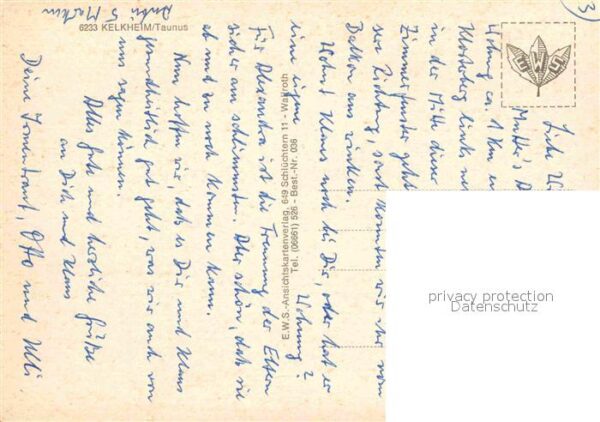 6233 KELKHEIM/Taunus
3)
Liebe
Mutter's
ca. 1 Km
links
in der Mitte dieser
Zimmerfenster geht
ser Richtung, sonst könnten wir ihr vom
Balkon aus winken.
Wohnt Klaus noch bei Dir, oder hat er
eine eigene Wohnung?
Für Alexandra ist die Trennung der Eltern
sicher am schlimmsten. Aber schön, daß sie
ab und zu noch kommen kann.
Nun hoffen wir, daß es Dir und Klaus
gesundheitlich gut geht, was wir auch von
uns sagen können.
Alles Gute und herzliche Grüße
an Dich und Klaus
Deine Irmentraut, Otto und Ulli
E.W.S.-Ansichtskartenverlag, 649 Schlüchtern 11 - Wallroth
Tel. (06661) 526 - Best.-Nr. 036
EWS
privacy protection
Datenschutz